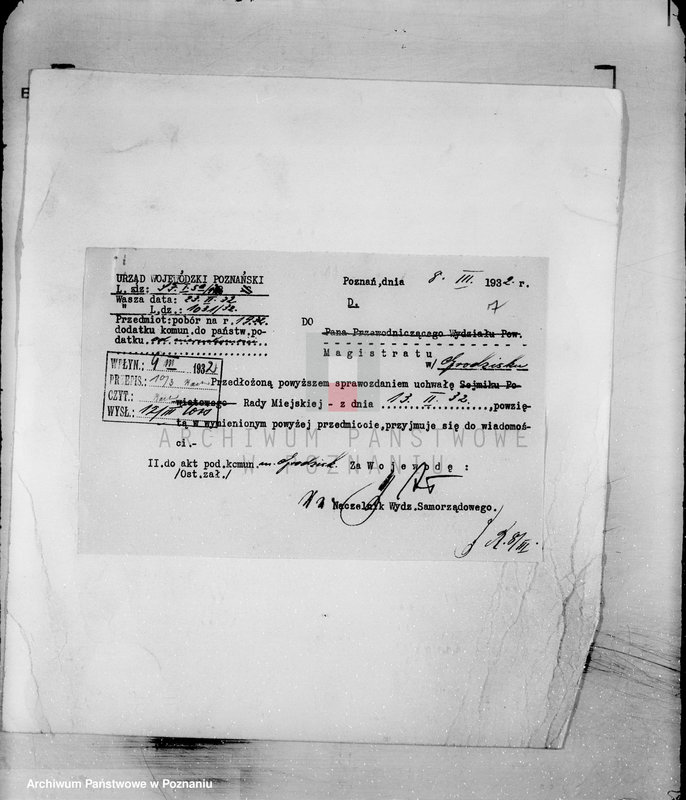 URZĄD WOJEWÓDZKI POZNAŃSKI
L. dz:
Wasza data: 23.II.32
" L.dz.: 1031/32.
Przedmiot: pobór na r. 1932
dodatku komun.do państw.po-
datku.od nieruchomości
Poznań,dnia 8. III. 1932. r.
D.
DO
Pana Przewodniczącego Wydziału Pow.
Magistratu
w/ Grodzisku
WPŁYN.: 9 III 1932
PRZEPIS.: 10/3
CZYT.:
WYSŁ.: 12/III
Przedłożoną powyższem sprawozdaniem uchwałę Sejmiku Po-
wiatowego Rady Miejskiej - z dnia 13. II. 32. ,powzię-
tą w wymienionym powyżej przedmiocie,przyjmuje się do wiadomoś-
ci.-
II.do akt pod.komun. m. Grodzisk.
/Ost.zał./
Za Wojewodę :
Naczelnik Wydz.Samorządowego.
K. 8/III.
ARCHIWUM PAŃSTWOWE
W POZNANIU
Archiwum Państwowe w Poznaniu